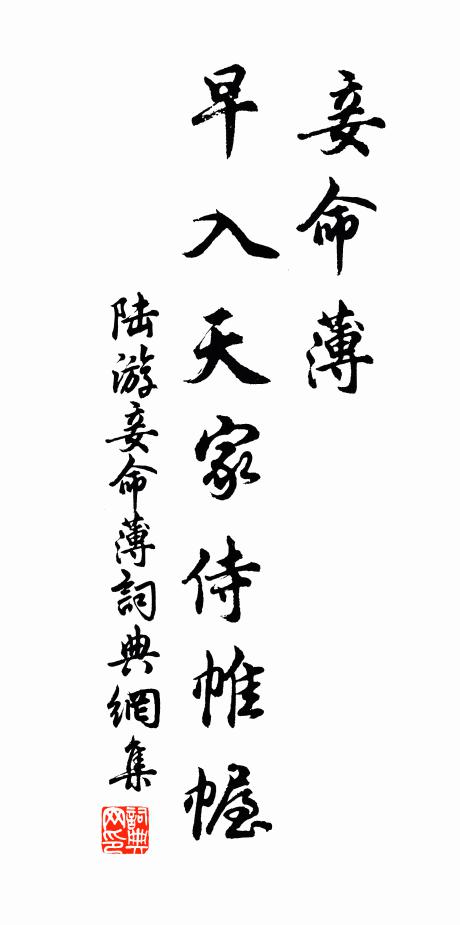 妾命薄
早入天家侍帷幄
陆游妾命薄詞典網集
詞典网印